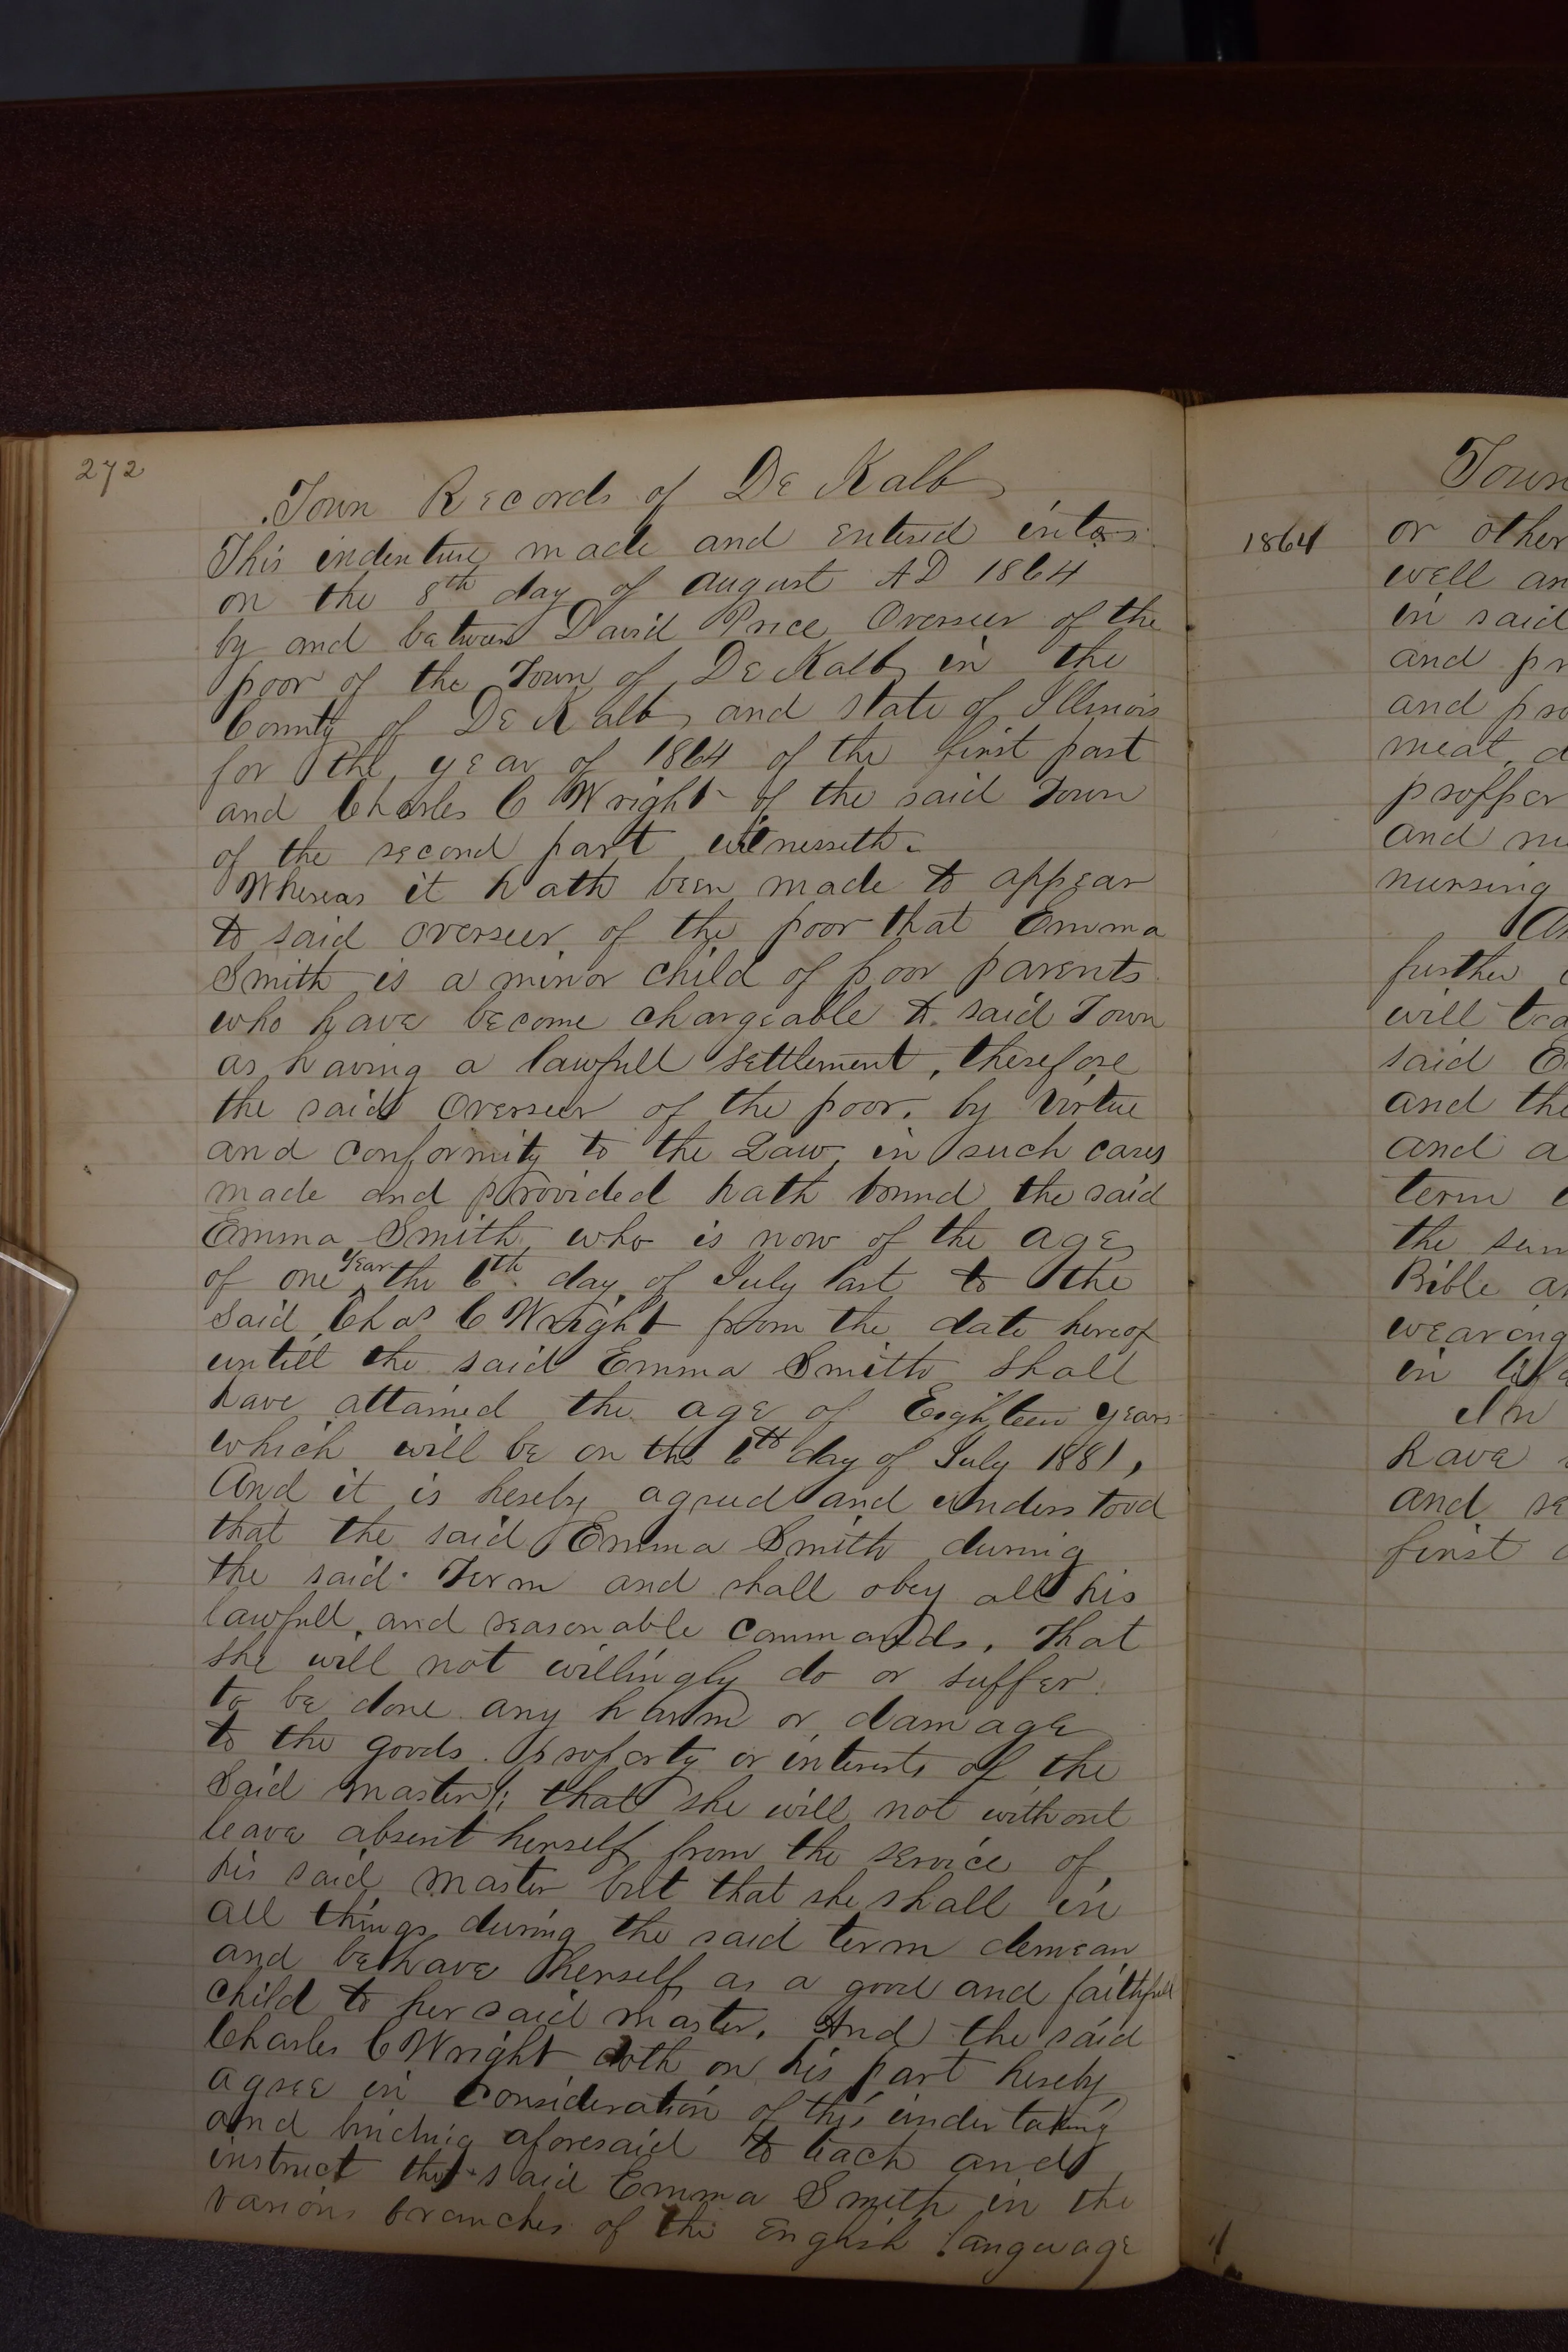 272
Town Records of De Kalb
This indenture made and entered into
on the 8th day of August AD 1864
by and between David Price Overseer of the
poor of the Town of De Kalb in the
County of De Kalb and state of Illinois
for the year of 1864 of the first part
and Charles C Wright of the said Town
of the second part witnesseth.
Whereas it hath been made to appear
to said overseer of the poor that Emma
Smith is a minor child of poor parents
who have become chargeable to said Town
as having a lawfull settlement, therefore
the said Overseer of the poor, by virtue
and conformity to the Law in such cases
made and provided hath bound the said
Emma Smith who is now of the age
of one year the 6th day of July last to the
said Chas C Wright from the date hereof
untill the said Emma Smith shall
have attained the age of Eighteen years
which will be on the 6th day of July 1881,
And it is hereby agreed and understood
that the said Emma Smith during
the said Term and shall obey all his
lawfull and reasonable commands. That
she will not willingly do or suffer
to be done any harm or damage
to the goods. property or interests of the
said master; that she will not without
leave absent herself from the service of
his said master but that she shall in
all things during the said term demean
and behave herself as a good and faithfull
child to her said master. And the said
Charles C Wright doth on his part hereby
agree in consideration of this undertaking
and binding aforesaid to teach and
instruct the said Emma Smith in the
various branches of the English language
1864
Town
or other
well an
in said
and pr
and pro
meat d
propper
and me
nursing
further
will tea
said E
and the
and a
term
the sum
Bible an
wearing
in
In
have
and se
first